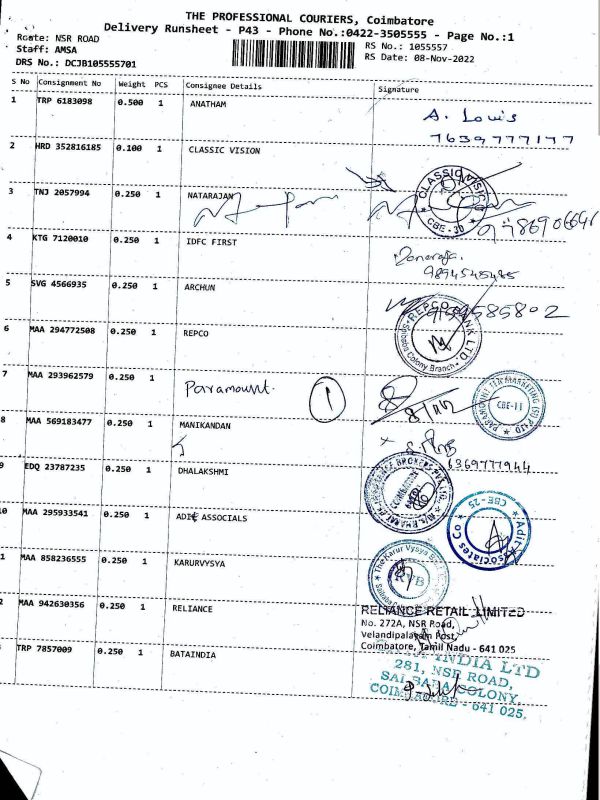 THE PROFESSIONAL COURIERS, Coimbatore
Delivery Runsheet - P43 - Phone No.:0422-3505555 - Page No.:1
Route: NSR ROAD
RS No.: 1055557
Staff: AMSA
RS Date: 08-Nov-2022
DRS No.: DCJB105555701
S No Consignment No Weight PCS Consignee Details Signature
1 TRP 6183098 0.500 1 ANATHAM
A. Louis
7639777177
2 HRD 352816185 0.100 1 CLASSIC VISION
CLASSIC VISION
CBE-20
3 TNJ 2057994 0.250 1 NATARAJAN
4 KTG 7120010 0.250 1 IDFC FIRST
9894545485
5 SVG 4566935 0.250 1 ARCHUN
6 MAA 294772508 0.250 1 REPCO
REPCO BANK LTD.
Colony Branch
7 MAA 293962579 0.250 1 Paramount. 1
8/11/22
PARAMOUNT TEA MARKETING (SI) P LTD
CBE-11
8 MAA 569183477 0.250 1 MANIKANDAN
6369777944
9 EDQ 23787235 0.250 1 DHALAKSHMI
10 MAA 295933541 0.250 1 ADIE ASSOCIALS
Adit Associates Co
CBE-25
1 MAA 858236555 0.250 1 KARURVYSYA
The Karur Vysya
KVB
2 MAA 942630356 0.250 1 RELIANCE
RELIANCE RETAIL LIMITED
No. 272A, NSR Road,
Velandipalayam Post,
Coimbatore, Tamil Nadu - 641 025
TRP 7857009 0.250 1 BATAINDIA
INDIA LTD
281, NSR ROAD,
SAI BABA COLONY,
COIMBATORE - 641 025.